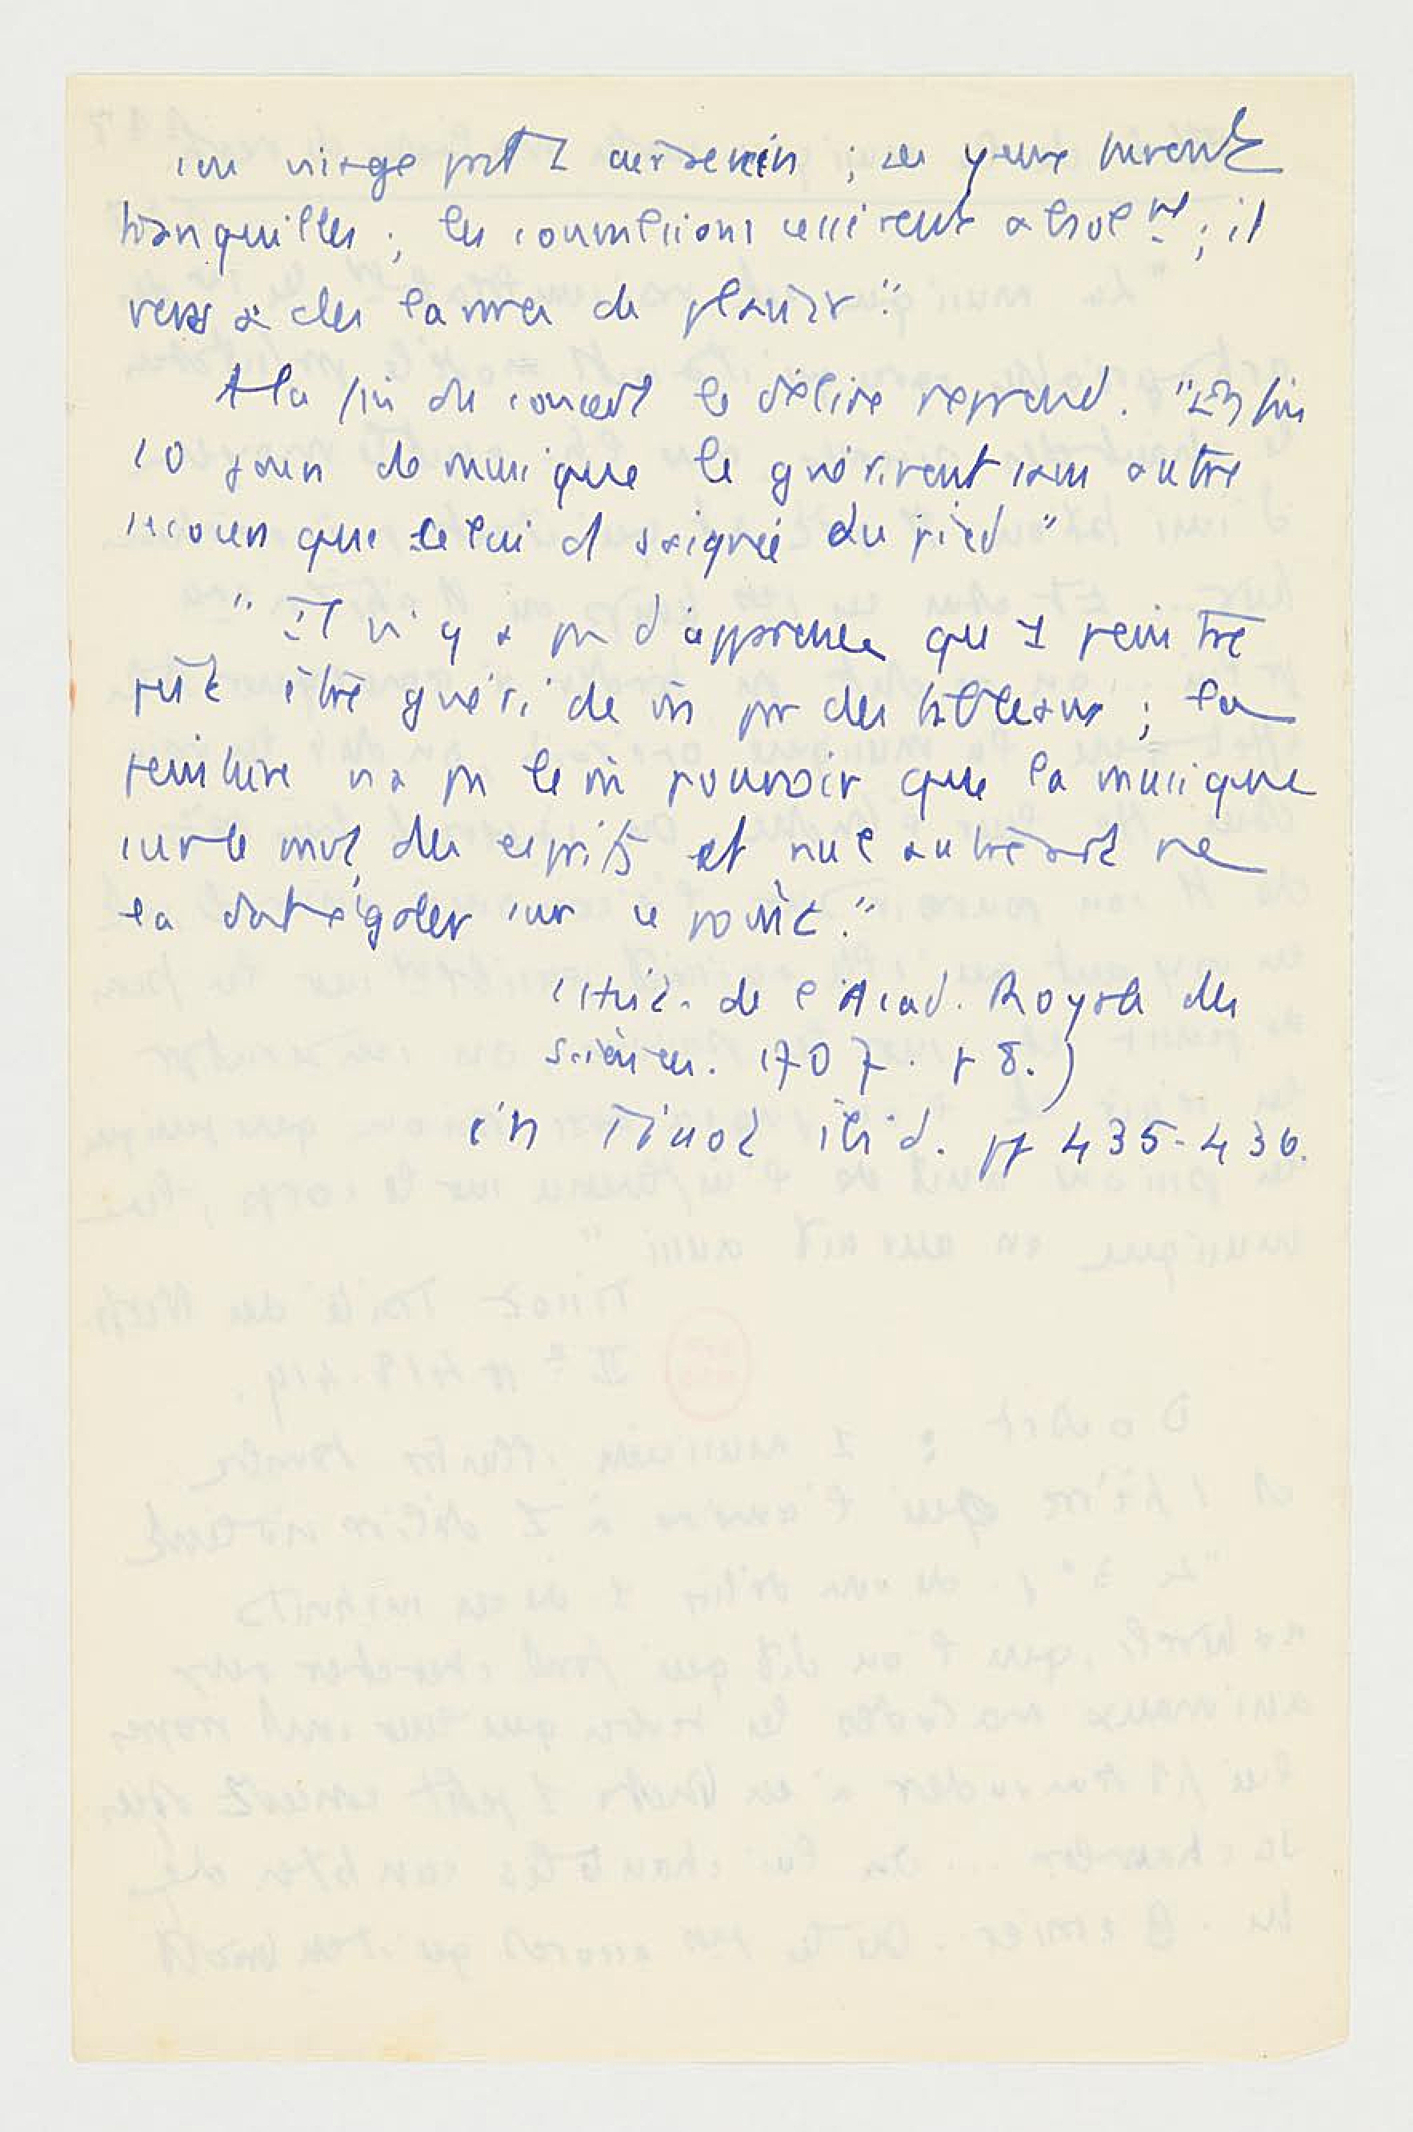 son visage prit 1 air serein ; ses yeux furent
tranquilles ; les convulsions cessèrent absolnt ; il
versa des larmes de plaisir"
A la fin du concert le délire reprend. "Enfin
10 jours de musique le guérirent sans autre
secours que celui d saignée du pied"
" Il n'y a pas d'apparence que 1 peintre
pût être guéri de m par des tableaux ; la
peinture n'a pas le m pouvoir que la musique
sur le mvt des esprits et nul autre art ne
la doit égaler sur ce point."
(Hist. de l'Acad. Royale des
Sciences. 1707. p 8.)
in Tissot ibid. pp 435-436.